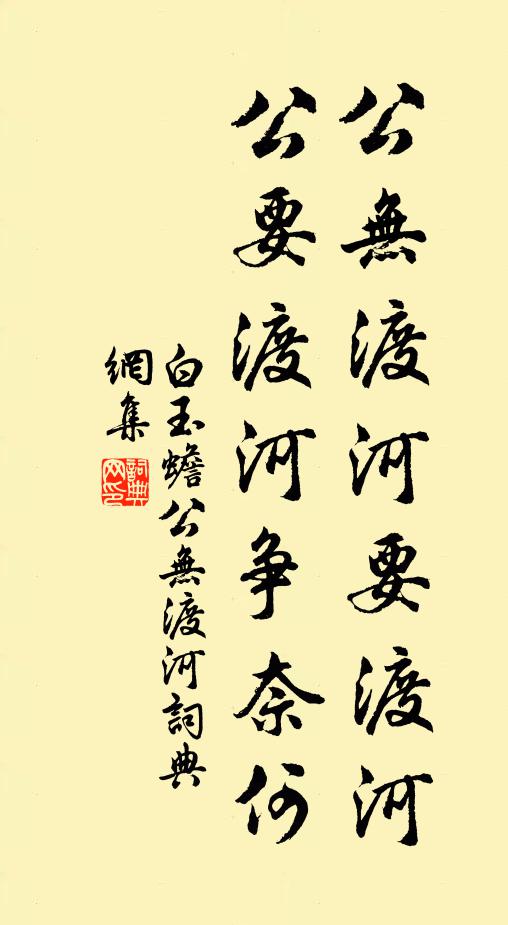 公無渡河要渡河
公要渡河争奈何
白玉蟾公無渡河詞典
網集
詞典網印